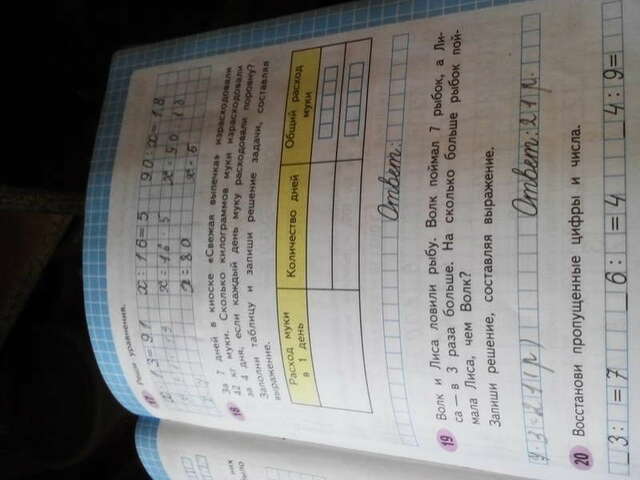 17 Реши уравнения.
х : 16 = 5 90 : х = 18
х = 16 · 5 х = 90 : 18
х = 80 х = 5
18 За 7 дней в киоске «Свежая выпечка» израсходовали
42 кг муки. Сколько килограммов муки израсходовали
за 4 дня, если каждый день муку расходовали поровну?
Заполни таблицу и запиши решение задачи, составляя
выражение.
Расход муки в 1 день Количество дней Общий расход муки
Ответ:
19 Волк и Лиса ловили рыбу. Волк поймал 7 рыбок, а Ли-
са — в 3 раза больше. На сколько больше рыбок пой-
мала Лиса, чем Волк?
Запиши решение, составляя выражение.
7·3=21(р) Ответ: 21 р.
20 Восстанови пропущенные цифры и числа.
_3: =7 _6: =4 _4:9=